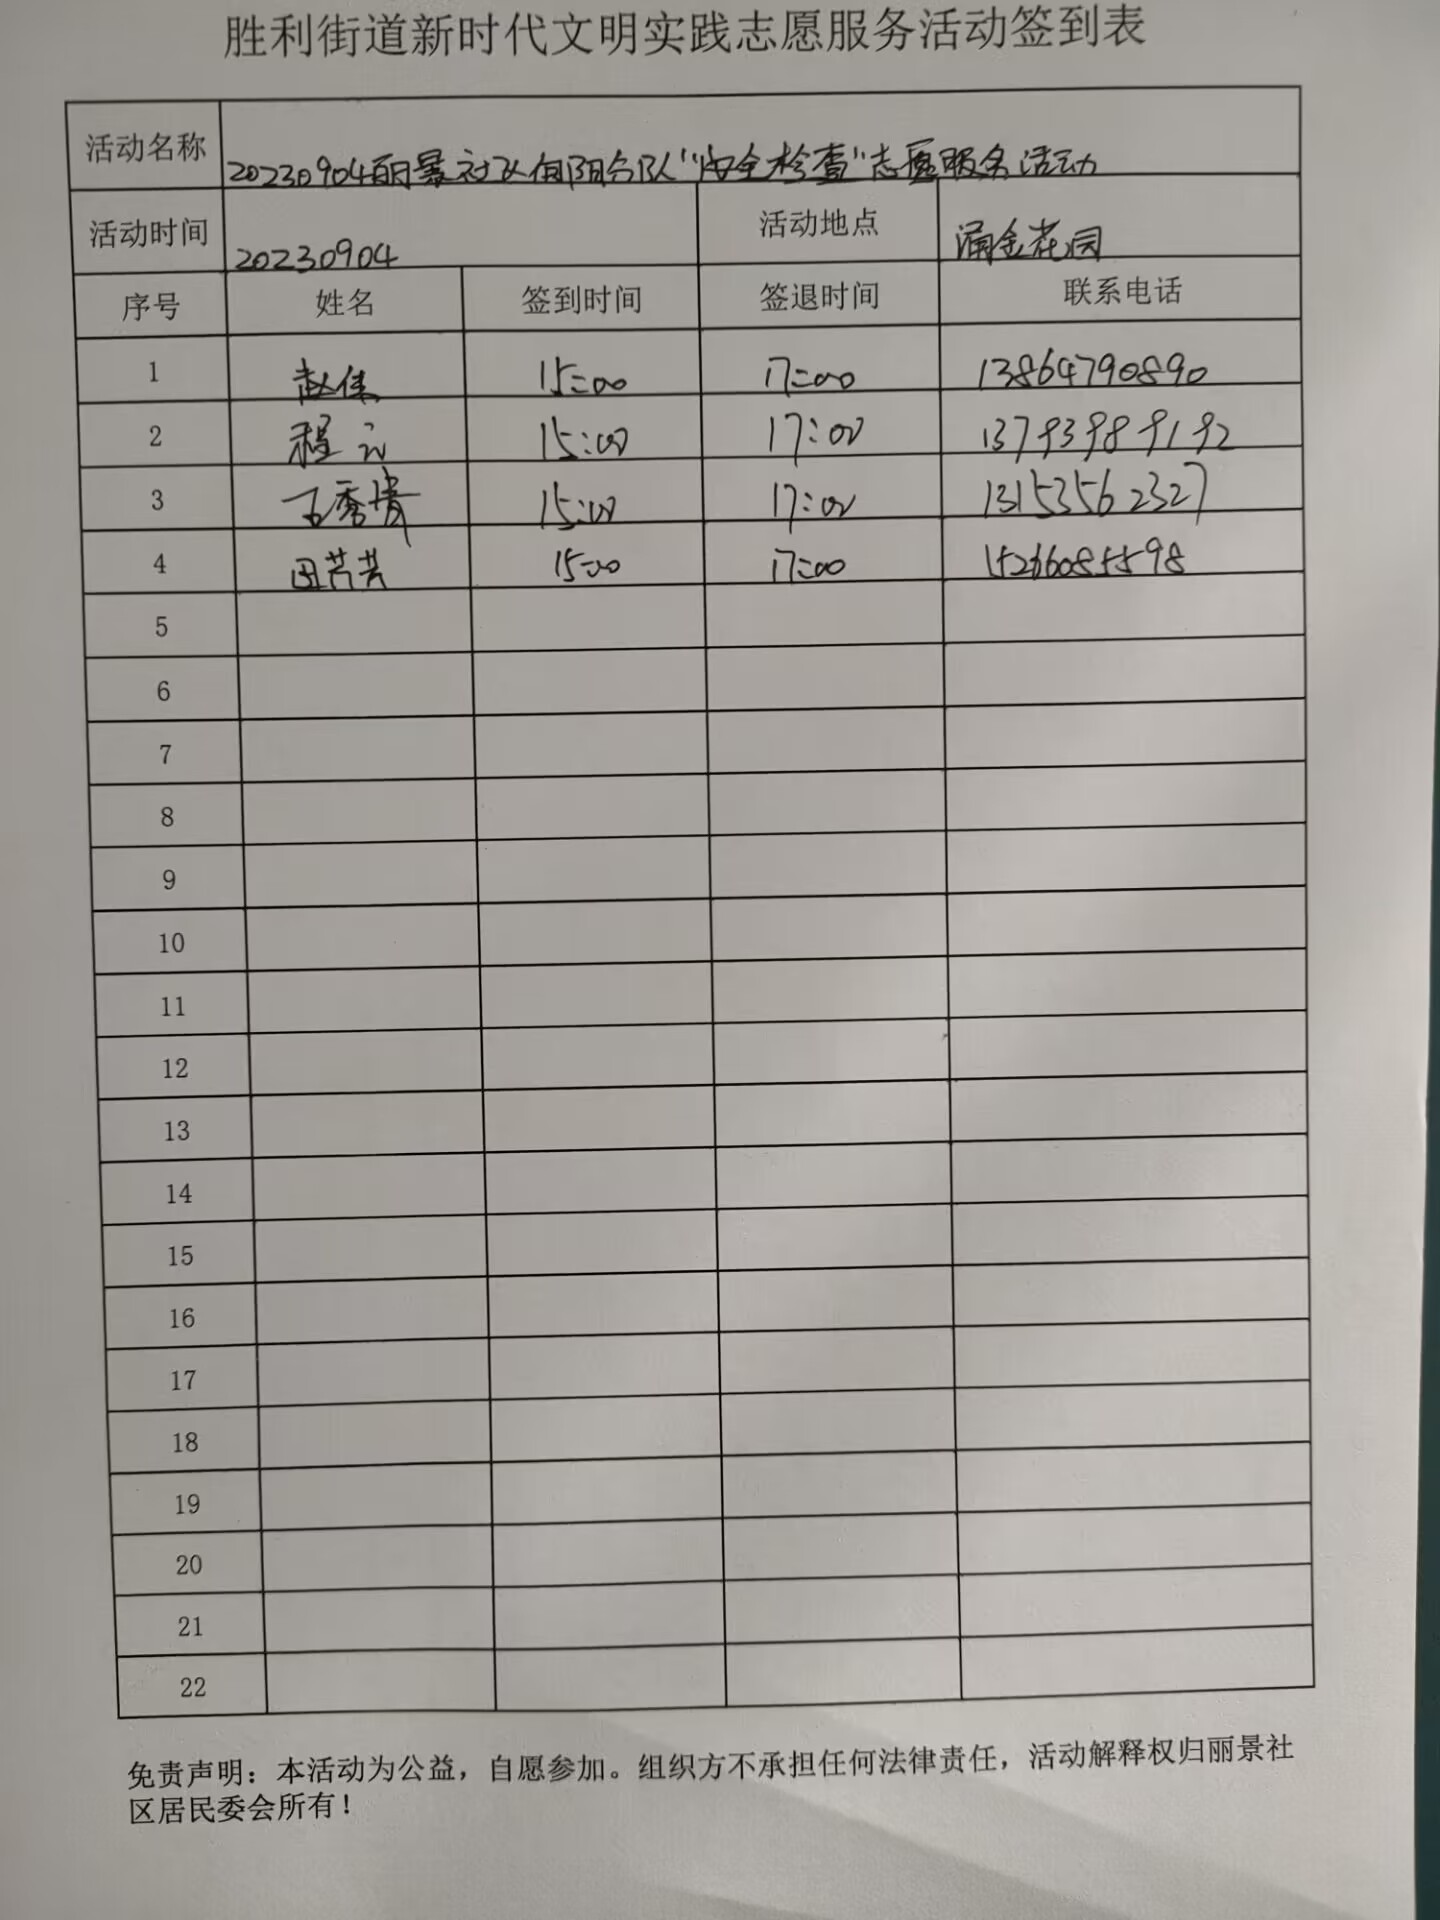 胜利街道新时代文明实践志愿服务活动签到表
活动名称 20230904丽景社区向阳分队“安全检查”志愿服务活动
活动时间 20230904 活动地点 涌金花园
序号 姓名 签到时间 签退时间 联系电话
1 赵伟 15:00 17:00 13864790890
2 程云 15:00 17:00 13793989192
3 秀 15:00 17:00 13153562327
4 田芹芹 15:00 17:00 15266085598
5
6
7
8
9
10
11
12
13
14
15
16
17
18
19
20
21
22
免责声明：本活动为公益，自愿参加。组织方不承担任何法律责任，活动解释权归丽景社
区居民委会所有！